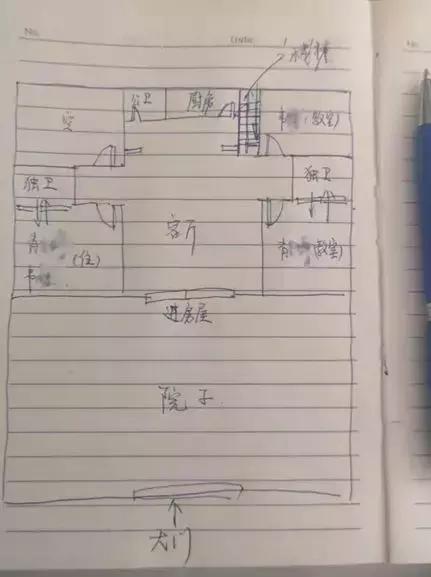 No.
Date
木楼梯
公卫
厨房
空
(教室)
独卫
独卫
客厅
青
(住)
青
(教室)
进房屋
院子
大门